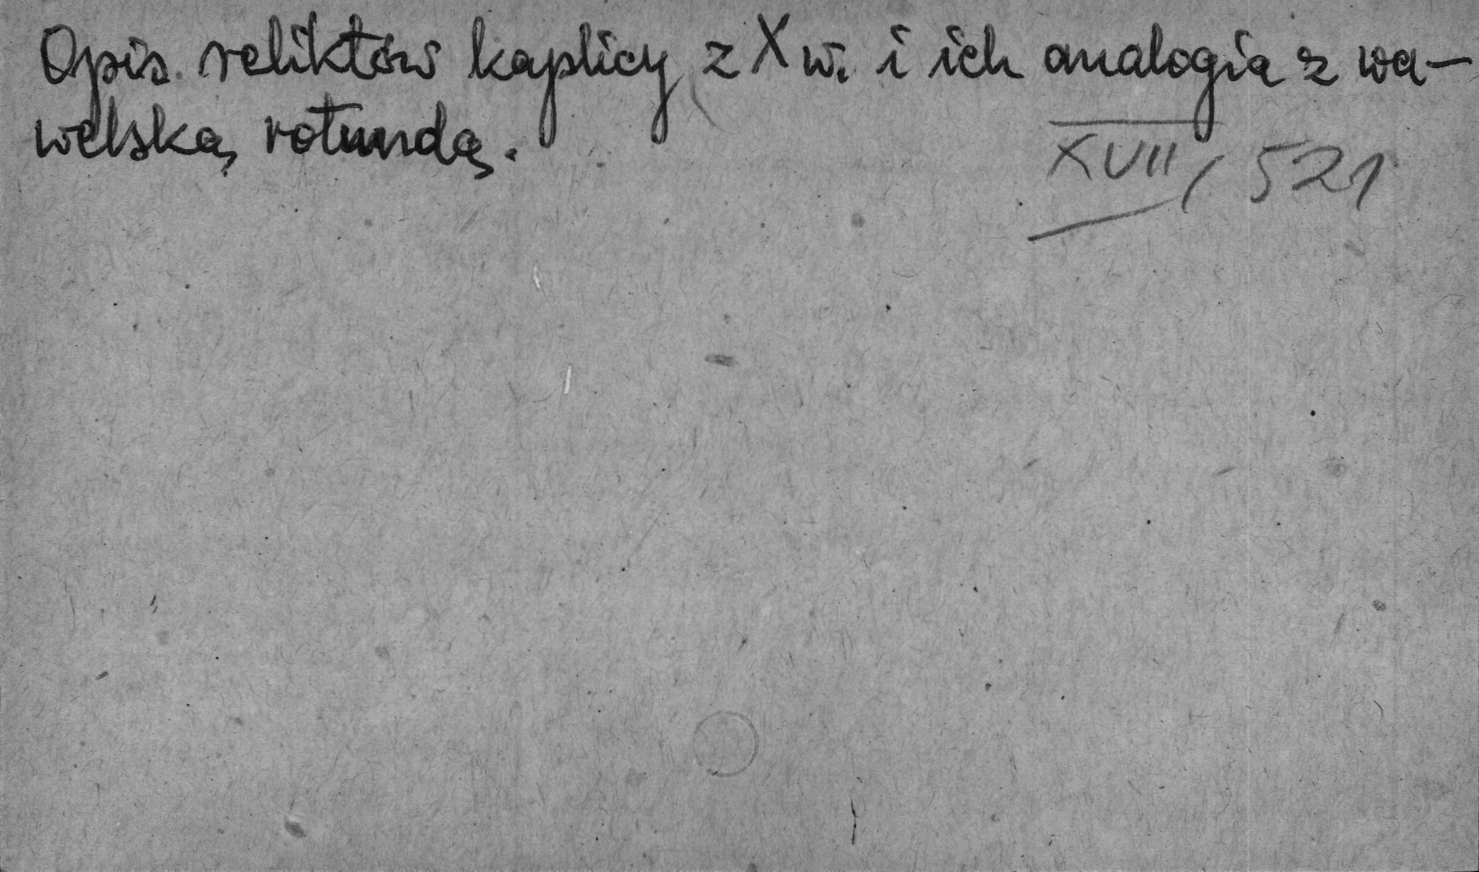 Opis reliktów kaplicy z X w. i ich analogia z wa-
welską rotundą.
XVII / 521